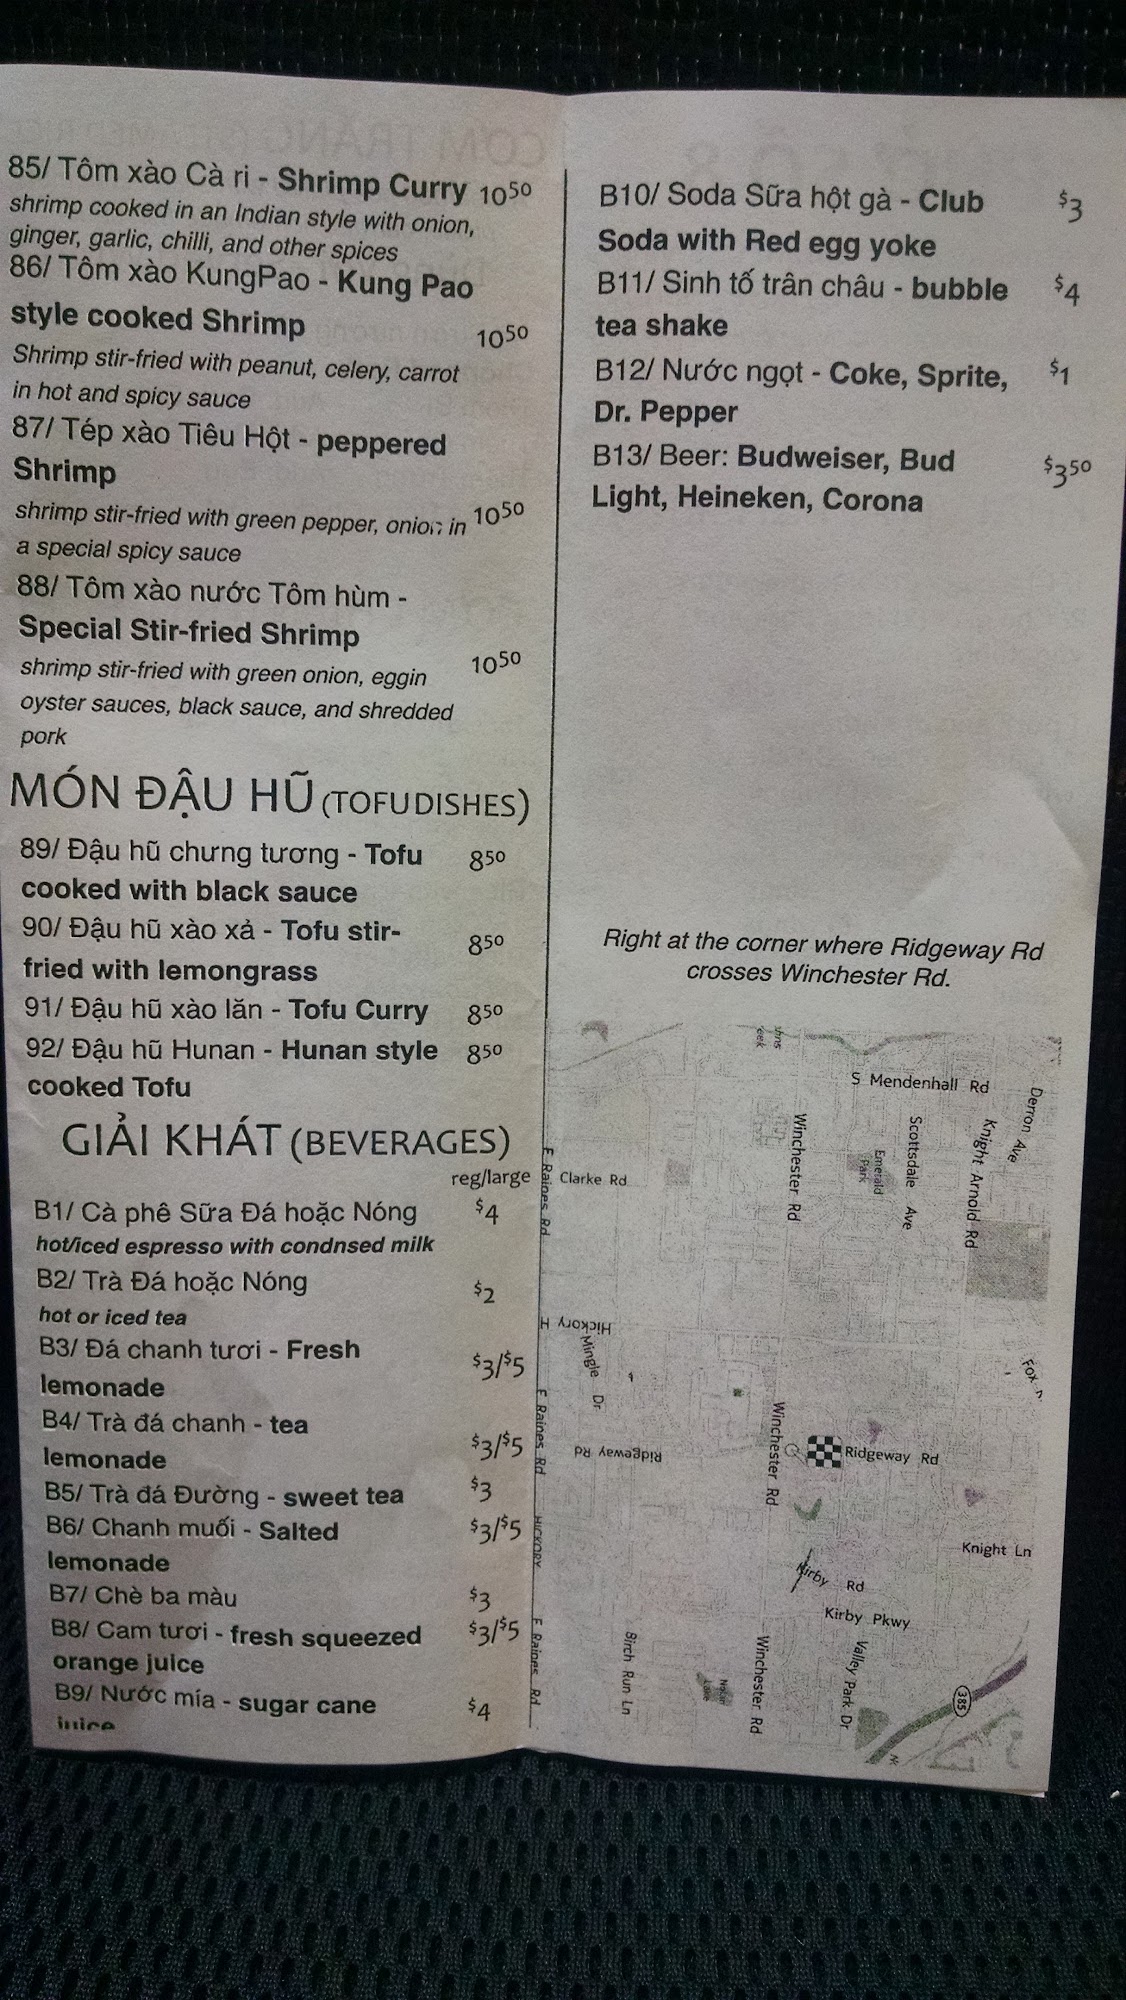 85/ Tôm xào Cà ri - Shrimp Curry 10⁵⁰
shrimp cooked in an Indian style with onion,
ginger, garlic, chilli, and other spices
86/ Tôm xào KungPao - Kung Pao
style cooked Shrimp 10⁵⁰
Shrimp stir-fried with peanut, celery, carrot
in hot and spicy sauce
87/ Tép xào Tiêu Hột - peppered
Shrimp
shrimp stir-fried with green pepper, onion in 10⁵⁰
a special spicy sauce
88/ Tôm xào nước Tôm hùm -
Special Stir-fried Shrimp
shrimp stir-fried with green onion, eggin 10⁵⁰
oyster sauces, black sauce, and shredded
pork
MÓN ĐẬU HŨ (TOFU DISHES)
89/ Đậu hũ chưng tương - Tofu 8⁵⁰
cooked with black sauce
90/ Đậu hũ xào xả - Tofu stir- 8⁵⁰
fried with lemongrass
91/ Đậu hũ xào lăn - Tofu Curry 8⁵⁰
92/ Đậu hũ Hunan - Hunan style 8⁵⁰
cooked Tofu
GIẢI KHÁT (BEVERAGES)
reg/large
B1/ Cà phê Sữa Đá hoặc Nóng $4
hot/iced espresso with condnsed milk
B2/ Trà Đá hoặc Nóng $2
hot or iced tea
B3/ Đá chanh tươi - Fresh $3/$5
lemonade
B4/ Trà đá chanh - tea $3/$5
lemonade
B5/ Trà đá Đường - sweet tea $3
B6/ Chanh muối - Salted $3/$5
lemonade
B7/ Chè ba màu $3
B8/ Cam tươi - fresh squeezed $3/$5
orange juice
B9/ Nước mía - sugar cane $4
juice
B10/ Soda Sữa hột gà - Club $3
Soda with Red egg yoke
B11/ Sinh tố trân châu - bubble $4
tea shake
B12/ Nước ngọt - Coke, Sprite, $1
Dr. Pepper
B13/ Beer: Budweiser, Bud $3⁵⁰
Light, Heineken, Corona
Right at the corner where Ridgeway Rd
crosses Winchester Rd.
S Mendenhall Rd
Derron Ave
Winchester Rd
Scottsdale Ave
Knight Arnold Rd
Emerald Park
E Raines Rd
Clarke Rd
Hickory H
Mingle Dr
Fox
E Raines Rd
Ridgeway Rd
Winchester Rd
Ridgeway Rd
HICKORY
Knight Ln
Kirby Rd
Kirby Pkwy
E Raines Rd
Birch Run Ln
Winchester Rd
Valley Park Dr
385